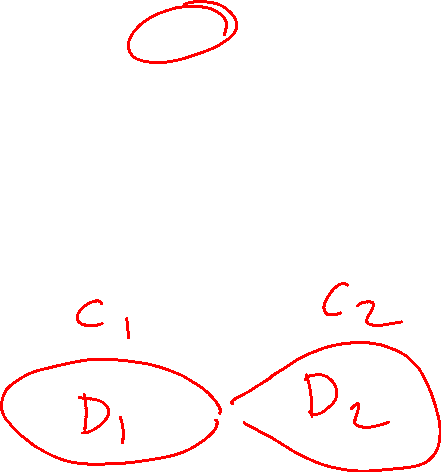 C1 C2
D1 D2